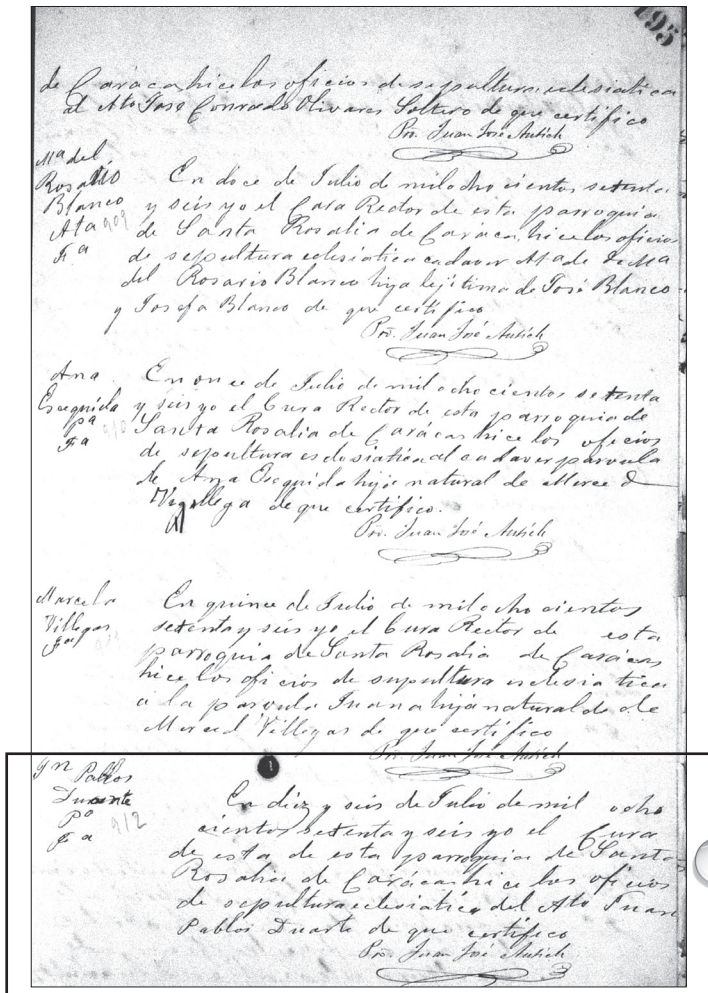 195
de Carácas hice los oficios de sepultura eclesiatica
al Ato José Conrado Olivares Soltero de que certifico
Pro. Juan José Antich
Mª del
Rosario
Blanco
Ata 909
Fª
En doce de Julio de mil ocho cientos setenta
y seis yo el Cura Rector de esta parroquia
de Santa Rosalia de Carácas hice los oficios
de sepultura eclesiatica cadaver Ata de Mª
del Rosario Blanco hija lejitima de José Blanco
y Josefa Blanco de que certifico
Pro. Juan José Antich
Ana
Esequida
Pª 910
Fª
En once de Julio de mil ocho cientos setenta
y seis yo el Cura Rector de esta parroquia de
Santa Rosalia de Carácas hice los oficios
de sepultura esclesiatica al cadaver parvula
de Ana Esequida hija natural de Merced
de que certifico.
Pro. Juan José Antich
Marcela
Villegas
Fª
En quince de Julio de mil ocho cientos
setenta y seis yo el Cura Rector de esta
parroquia de Santa Rosalia de Carácas
hice los oficios de supultura eclesia tica
á la parvula Juana hija natural de de
Merced Villegas de que certifico
Pro. Juan José Antich
Jn Pablos
Duarte
Pº 912
Fª
1
En diez y seis de Julio de mil ocho
cientos setenta y seis yo el Cura
de esta de esta parroquia de Santa
Rosalia de Carácas hice los oficios
de sepultura eclesiatica del Ato Juan
Pablos Duarte de que certifico
Pro. Juan José Antich